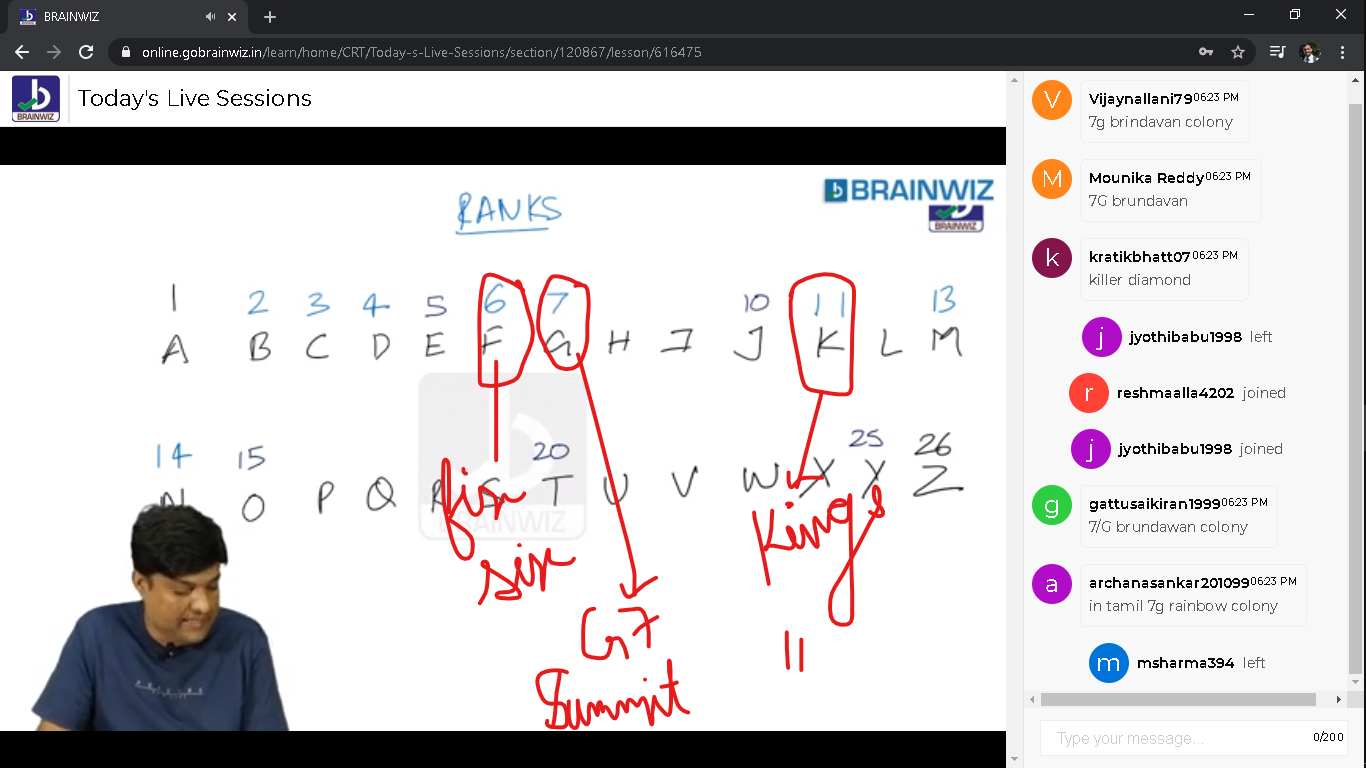 BRAINWIZ
online.gobrainwiz.in/learn/home/CRT/Today-s-Live-Sessions/section/120867/lesson/616475
BRAINWIZ
Today's Live Sessions
RANKS
BRAINWIZ
BRAINWIZ
1 2 3 4 5 6 7 10 11 13
A B C D E F G H I J K L M
14 15 20 25 26
N O P Q R S T U V W X Y Z
fix
six
Kings
11
G7
Summit
BRAINWIZ
V
Vijaynallani79 06:23 PM
7g brindavan colony
M
Mounika Reddy 06:23 PM
7G brundavan
k
kratikbhatt07 06:23 PM
killer diamond
j
jyothibabu1998 left
r
reshmaalla4202 joined
j
jyothibabu1998 joined
g
gattusaikiran1999 06:23 PM
7/G brundawan colony
a
archanasankar201099 06:23 PM
in tamil 7g rainbow colony
m
msharma394 left
Type your message...
0/200